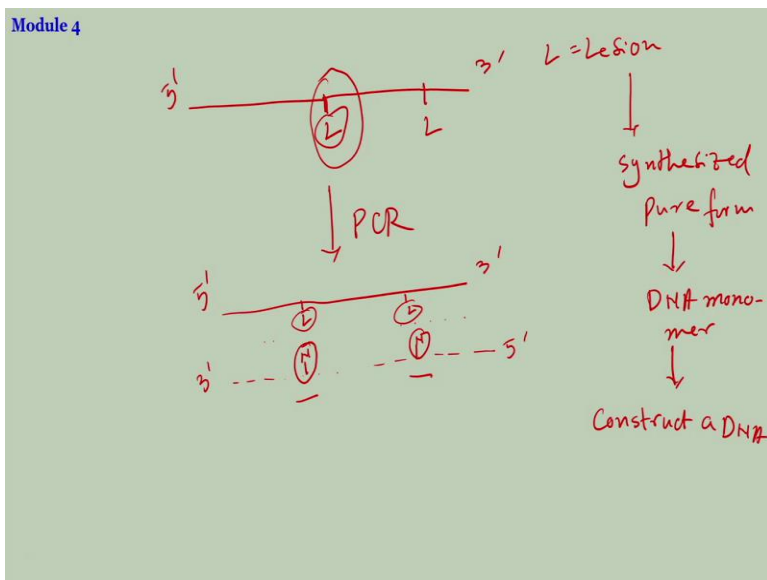 Module 4
5' 3'
L L
L = Lesion
synthesized
pure form
DNA mono-
mer
Construct a DNA
PCR
5' 3'
L L
N N
3' 5'